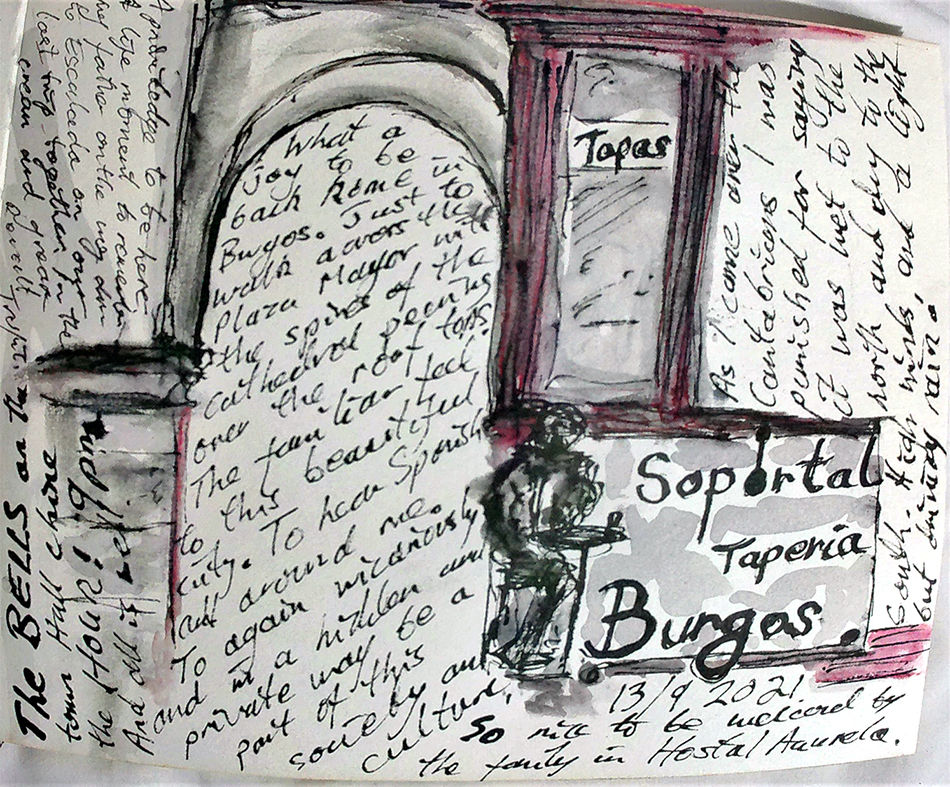 A privilege to be here.
A life moment to remember
my father on the way down
to Escalada on our
last trip together in the
cream and green
The BELLS on the
town Hall chime
the Hour! 9pm
And all is
What a
joy to be
back home in
Burgos. Just to
walk across the
Plaza Mayor with
the spires of the
cathedral peering
over the roof tops.
The familiar feel
to this beautiful
city. To hear Spanish
all around me.
To again vicariously
and in a hidden and
private way be a
part of this
society and
culture.
Tapas
As I came over the
Cantabricas I was
punished for saying
it was wet to the
north and dry to the
South. High winds and a light
but driving rain.
Soportal
Taperia
Burgos.
13/9 2021
So nice to be welcomed by
the family in Hostal